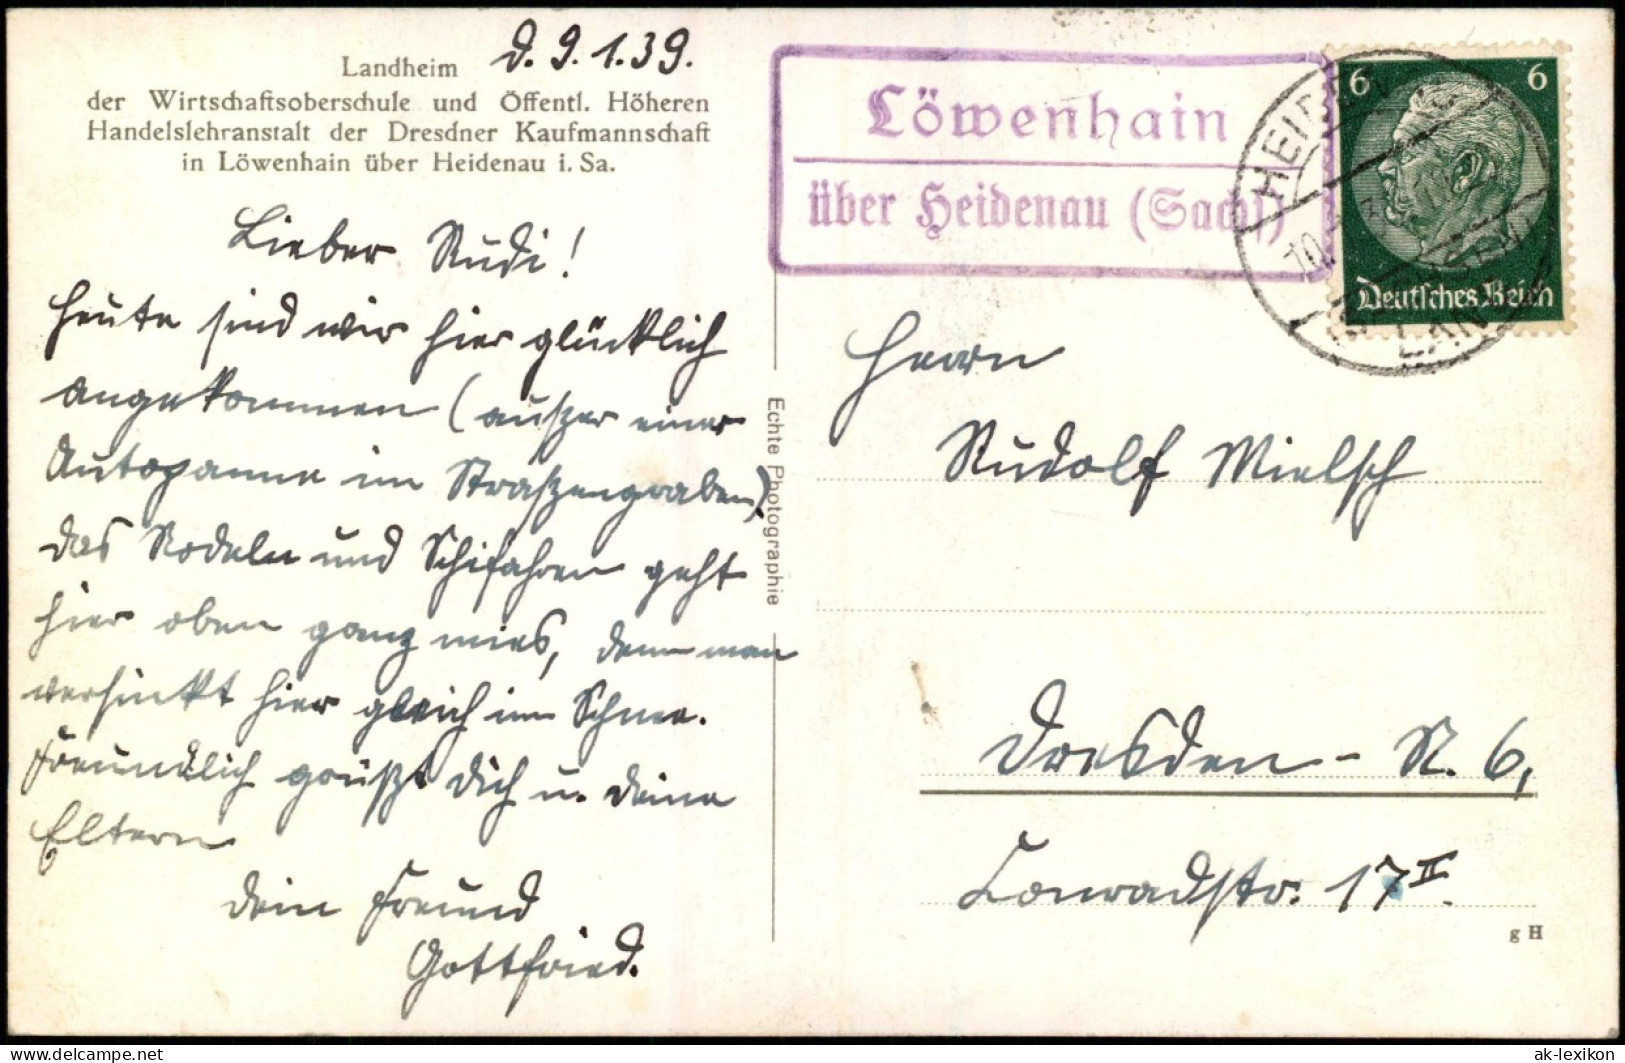 Landheim
d. 9. 1. 39.
der Wirtschaftsoberschule und Öffentl. Höheren
Handelslehranstalt der Dresdner Kaufmannschaft
in Löwenhain über Heidenau i. Sa.
Lieber Rudi!
Heute sind wir hier glücklich
angekommen (außer einer
Autopanne im Straßengraben)
das Rodeln und Schifahren geht
hier oben ganz mies, denn man
versinkt hier gleich im Schnee.
Freundlich grüßt Dich u. Deine
Eltern
Dein Freund
Gottfried.
Echte Photographie
Löwenhain
über Heidenau (Sachs)
6 6
Deutsches Reich
Herrn
Rudolf Mielsch
Dresden - N. 6,
Conradstr. 17 II.
g H
delcampe.net
ak-lexikon